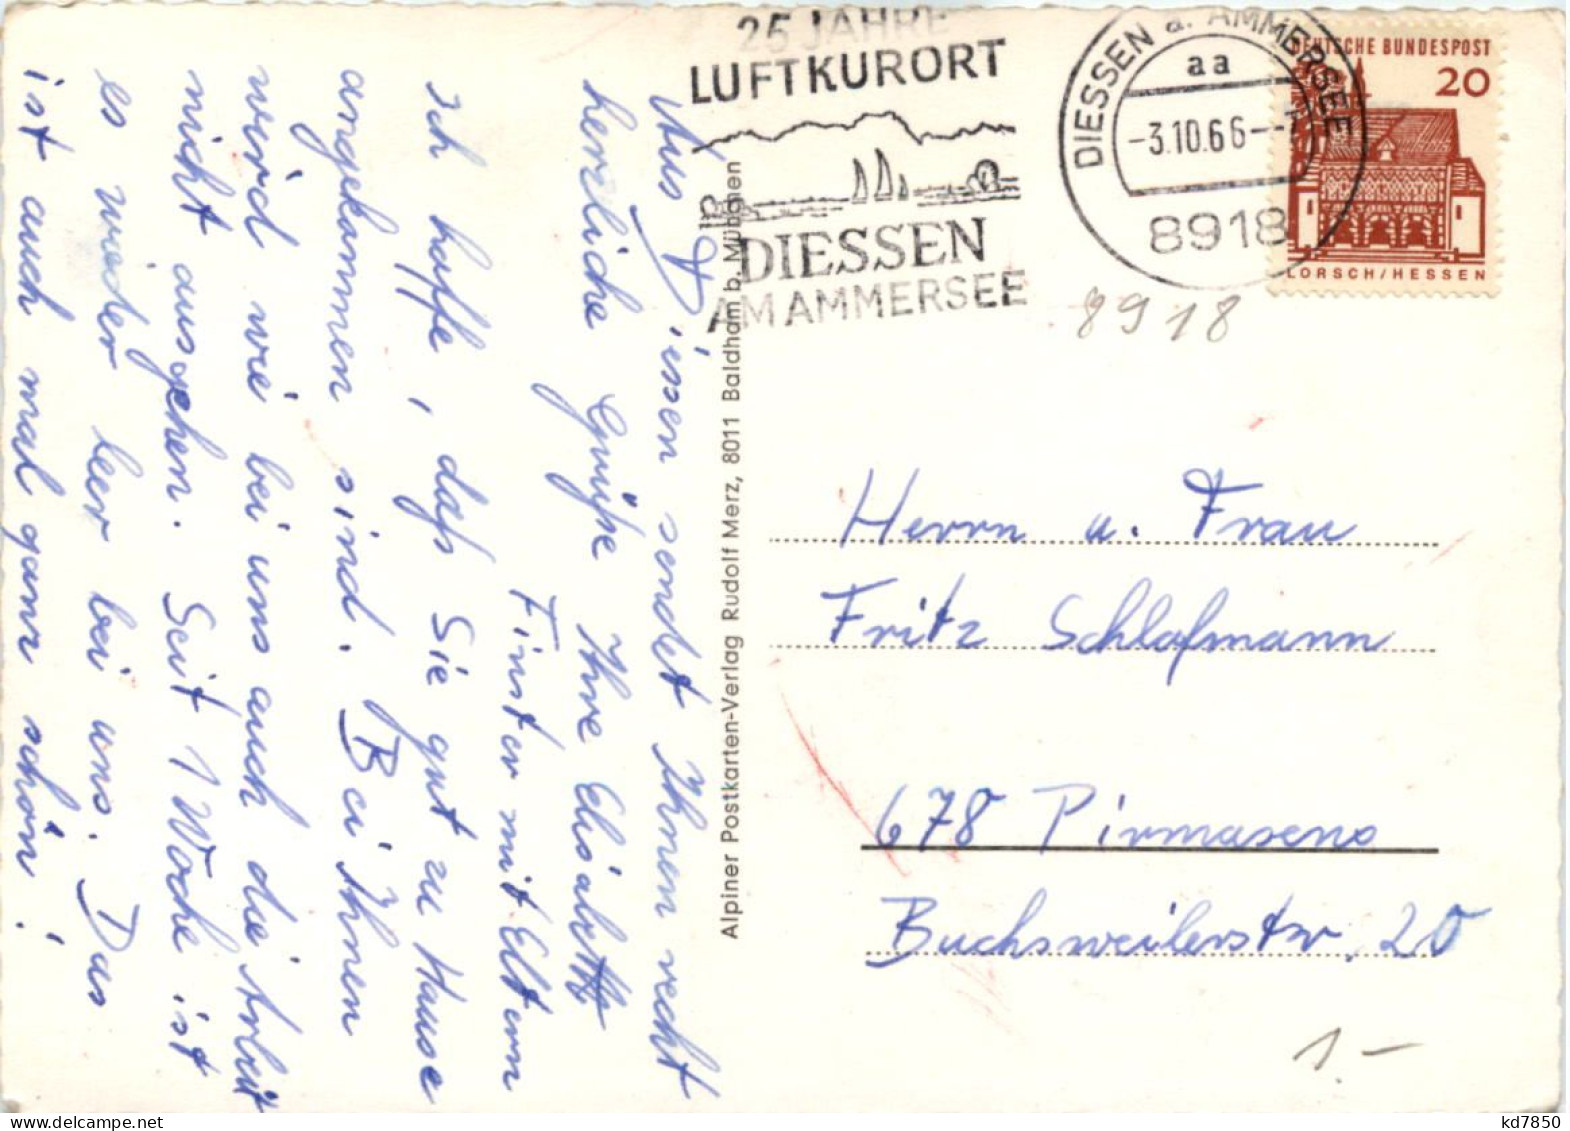 25 JAHRE
LUFTKURORT
DIESSEN
AM AMMERSEE
DIESSEN a. AMMERSEE
aa
-3.10.66-
8918
DEUTSCHE BUNDESPOST
20
LORSCH/HESSEN
8918
Aus Diessen sendet Ihnen recht
herzliche Grüße Ihre Elisabeth
Finster mit Eltern
Ich hoffe, daß Sie gut zu Hause
angekommen sind. Bei Ihnen
wird wie bei uns auch die Arbeit
nicht ausgehen. Seit 1 Woche ist
es wieder leer bei uns. Das
ist auch mal ganz schön!
Alpiner Postkarten-Verlag Rudolf Merz, 8011 Baldham b. München
Herrn u. Frau
Fritz Schlafmann
678 Pirmasens
Buchsweilerstr. 20
1.-
kd7850